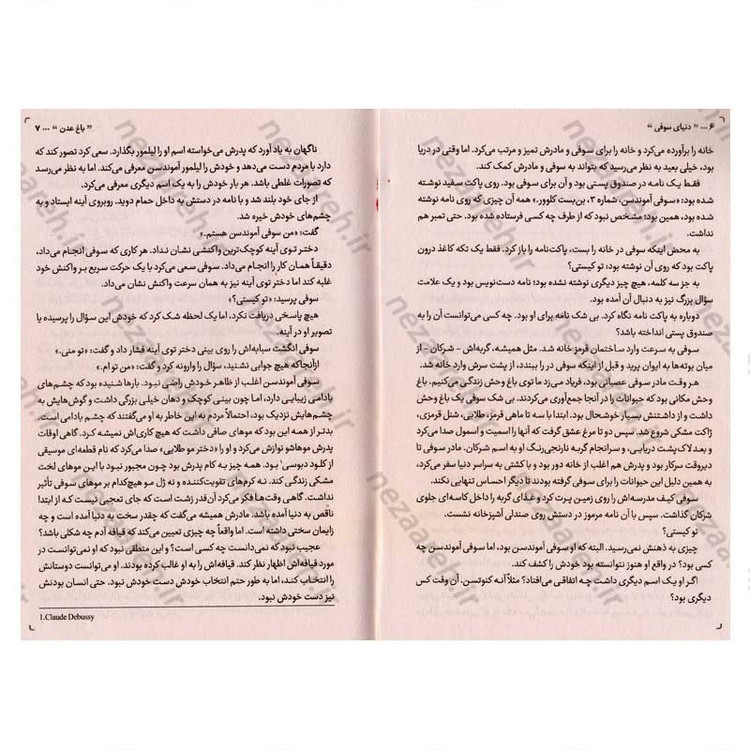 ۶ ... " دنیای سوفی "
خانه را برآورده می‌کرد و خانه را برای سوفی و مادرش تمیز و مرتب می‌کرد. اما وقتی در دریا
بود، خیلی بعید به نظر می‌رسید که بتواند به سوفی و مادرش کمک کند.
فقط یک نامه در صندوق پستی بود و آن برای سوفی بود. روی پاکت سفید نوشته
شده بود: «سوفی آموندسن، شماره ۳، بن‌بست کلوور.» همه آن چیزی که روی نامه نوشته
شده بود، همین بود؛ مشخص نبود که از طرف چه کسی فرستاده شده بود. حتی تمبر هم
نداشت.
به محض اینکه سوفی در خانه را بست، پاکت‌نامه را باز کرد. فقط یک تکه کاغذ درون
پاکت بود که روی آن نوشته بود: تو کیستی؟
به جز سه کلمه، هیچ چیز دیگری نوشته نشده بود؛ نامه دست‌نویس بود و یک علامت
سؤال بزرگ نیز به دنبال آن آمده بود.
دوباره به پاکت نامه نگاه کرد. بی شک نامه برای او بود. چه کسی می‌توانست آن را به
صندوق پستی انداخته باشد؟
سوفی به سرعت وارد ساختمان قرمز خانه شد. مثل همیشه، گربه‌اش - شرکان - از
میان بوته‌ها به ایوان پرید و قبل از اینکه سوفی در را ببندد، از پشت سرش وارد خانه شد.
هر وقت مادر سوفی عصبانی بود، فریاد می‌زد ما توی باغ وحش زندگی می‌کنیم. باغ
وحش مکانی بود که حیوانات را در آنجا جمع‌آوری می‌کردند. بی شک سوفی یک باغ وحش
داشت و از داشتنش بسیار خوشحال بود. ابتدا با سه تا ماهی قرمز، طلایی، شنل قرمزی،
ژاکت مشکی شروع شد. سپس دو تا مرغ عشق گرفت که آنها را اسمیت و اسمول صدا می‌کرد
و بعد لاک‌پشت دریایی، و سرانجام گربه نارنجی‌رنگ او به اسم شرکان. مادر سوفی تا
دیروقت سرکار بود و پدرش هم اغلب از خانه دور بود و با کشتی به سراسر دنیا سفر می‌کرد،
به همین دلیل این حیوانات را برای سوفی گرفته بودند تا دیگر احساس تنهایی نکند.
سوفی کیف مدرسه‌اش را روی زمین پرت کرد و غذای گربه را داخل کاسه‌ای جلوی
شرکان گذاشت. سپس با آن نامه مرموز در دستش روی صندلی آشپزخانه نشست.
تو کیستی؟
چیزی به ذهنش نمی‌رسید. البته که او سوفی آموندسن بود، اما سوفی آموندسن چه
کسی بود؟ در واقع او هنوز نتوانسته بود خودش را کشف کند.
اگر او یک اسم دیگری داشت چه اتفاقی می‌افتاد؟ مثلاً آنه کنوتسن. آن وقت کس
دیگری بود؟
" باغ عدن " ... ۷
ناگهان به یاد آورد که پدرش می‌خواسته اسم او را لیلمور بگذارد. سعی کرد تصور کند که
دارد با مردم دست می‌دهد و خودش را لیلمور آموندسن معرفی می‌کند. اما به نظر می‌رسد
که تصورات غلطی باشد. هر بار خودش را به یک اسم دیگری معرفی می‌کرد.
از جای خود بلند شد و با نامه در دستش به داخل حمام دوید. روبروی آینه ایستاد و به
چشم‌های خودش خیره شد.
گفت: «من سوفی آموندسن هستم.»
دختر توی آینه کوچک‌ترین واکنشی نشان نداد. هر کاری که سوفی انجام می‌داد،
دقیقاً همان کار را انجام می‌داد. سوفی سعی می‌کرد با یک حرکت سریع بر واکنش خود
غلبه کند اما دختر توی آینه نیز به همان سرعت واکنش نشان می‌داد.
سوفی پرسید: «تو کیستی؟»
هیچ پاسخی دریافت نکرد، اما یک لحظه شک کرد که خودش این سؤال را پرسیده یا
تصویر او در آینه.
سوفی انگشت سبابه‌اش را روی بینی دختر توی آینه فشار داد و گفت: «تو منی.»
ازآنجاکه هیچ جوابی نشنید، سؤال را وارونه کرد و گفت: «من تو ام.»
سوفی آموندسن اغلب از ظاهر خودش راضی نبود. بارها شنیده بود که چشم‌های
بادامی زیبایی دارد، اما چون بینی کوچک و دهان خیلی بزرگی داشت و گوش‌هایش به
چشم‌هایش نزدیک بود، احتمالاً مردم به این خاطر به او می‌گفتند که چشم بادامی است.
بدتر از همه این بود که موهای صافی داشت که هیچ کاری‌اش نمیشه کرد. گاهی اوقات
پدرش موهاشو نوازش می‌کرد و او را «دختر مو طلایی» صدا می‌کرد که نام قطعه‌ای موسیقی
از کلود دبوسی¹ بود. همه چیز به کام پدرش بود چون مجبور نبود با این موهای لخت
مشکی زندگی کند. نه کرم‌های تقویت‌کننده و نه ژل مو هیچ‌کدام بر موهای سوفی تأثیر
نداشت. گاهی وقت‌ها فکر می‌کرد آن‌قدر زشت است که جای تعجبی نیست که از ابتدا
ناقص به دنیا آمده باشد. مادرش همیشه می‌گفت که چقدر سخت به دنیا آمده است و چه
زایمان سختی داشته است. اما واقعاً چه چیزی تعیین می‌کند که قیافه آدم چه شکلی باشد؟
عجیب نبود که نمی‌دانست چه کسی است؟ و این منطقی نبود که او نمی‌توانست در
مورد قیافه‌اش اظهار نظر کند. قیافه‌اش را به او غالب کرده بودند. او می‌توانست دوستانش
را انتخاب کند، اما به طور حتم انتخاب خودش دست خودش نبود. حتی انسان بودنش
نیز دست خودش نبود.
1.Claude Debussy
nezaareh.ir